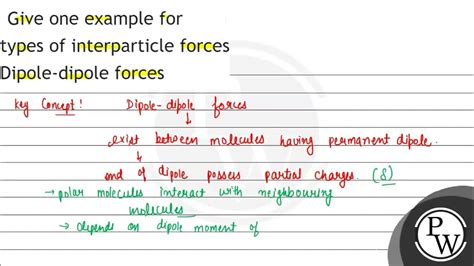 Give one example for
types of interparticle forces
Dipole-dipole forces
Key Concept! Dipole-dipole forces
exist between molecules having permanent dipole.
end of dipole possess partial charges. (δ)
→ polar molecules interact with neighbouring
molecules
→ depends on dipole moment of
PW